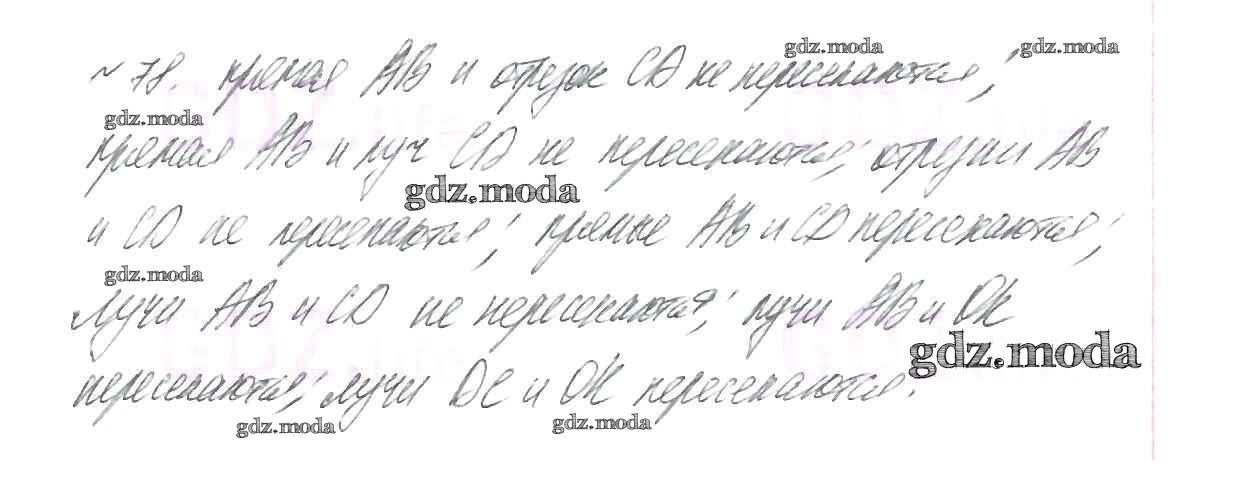 gdz.moda gdz.moda
~ 78. прямая AB и отрезок CD не пересекаются;
gdz.moda
прямая AB и луч CD не пересекаются; отрезки AB
gdz.moda
и CD не пересекаются; прямые AB и CD пересекаются;
gdz.moda
лучи AB и CD не пересекаются; лучи AB и OK
gdz.moda
пересекаются; лучи DC и OK пересекаются.
gdz.moda gdz.moda